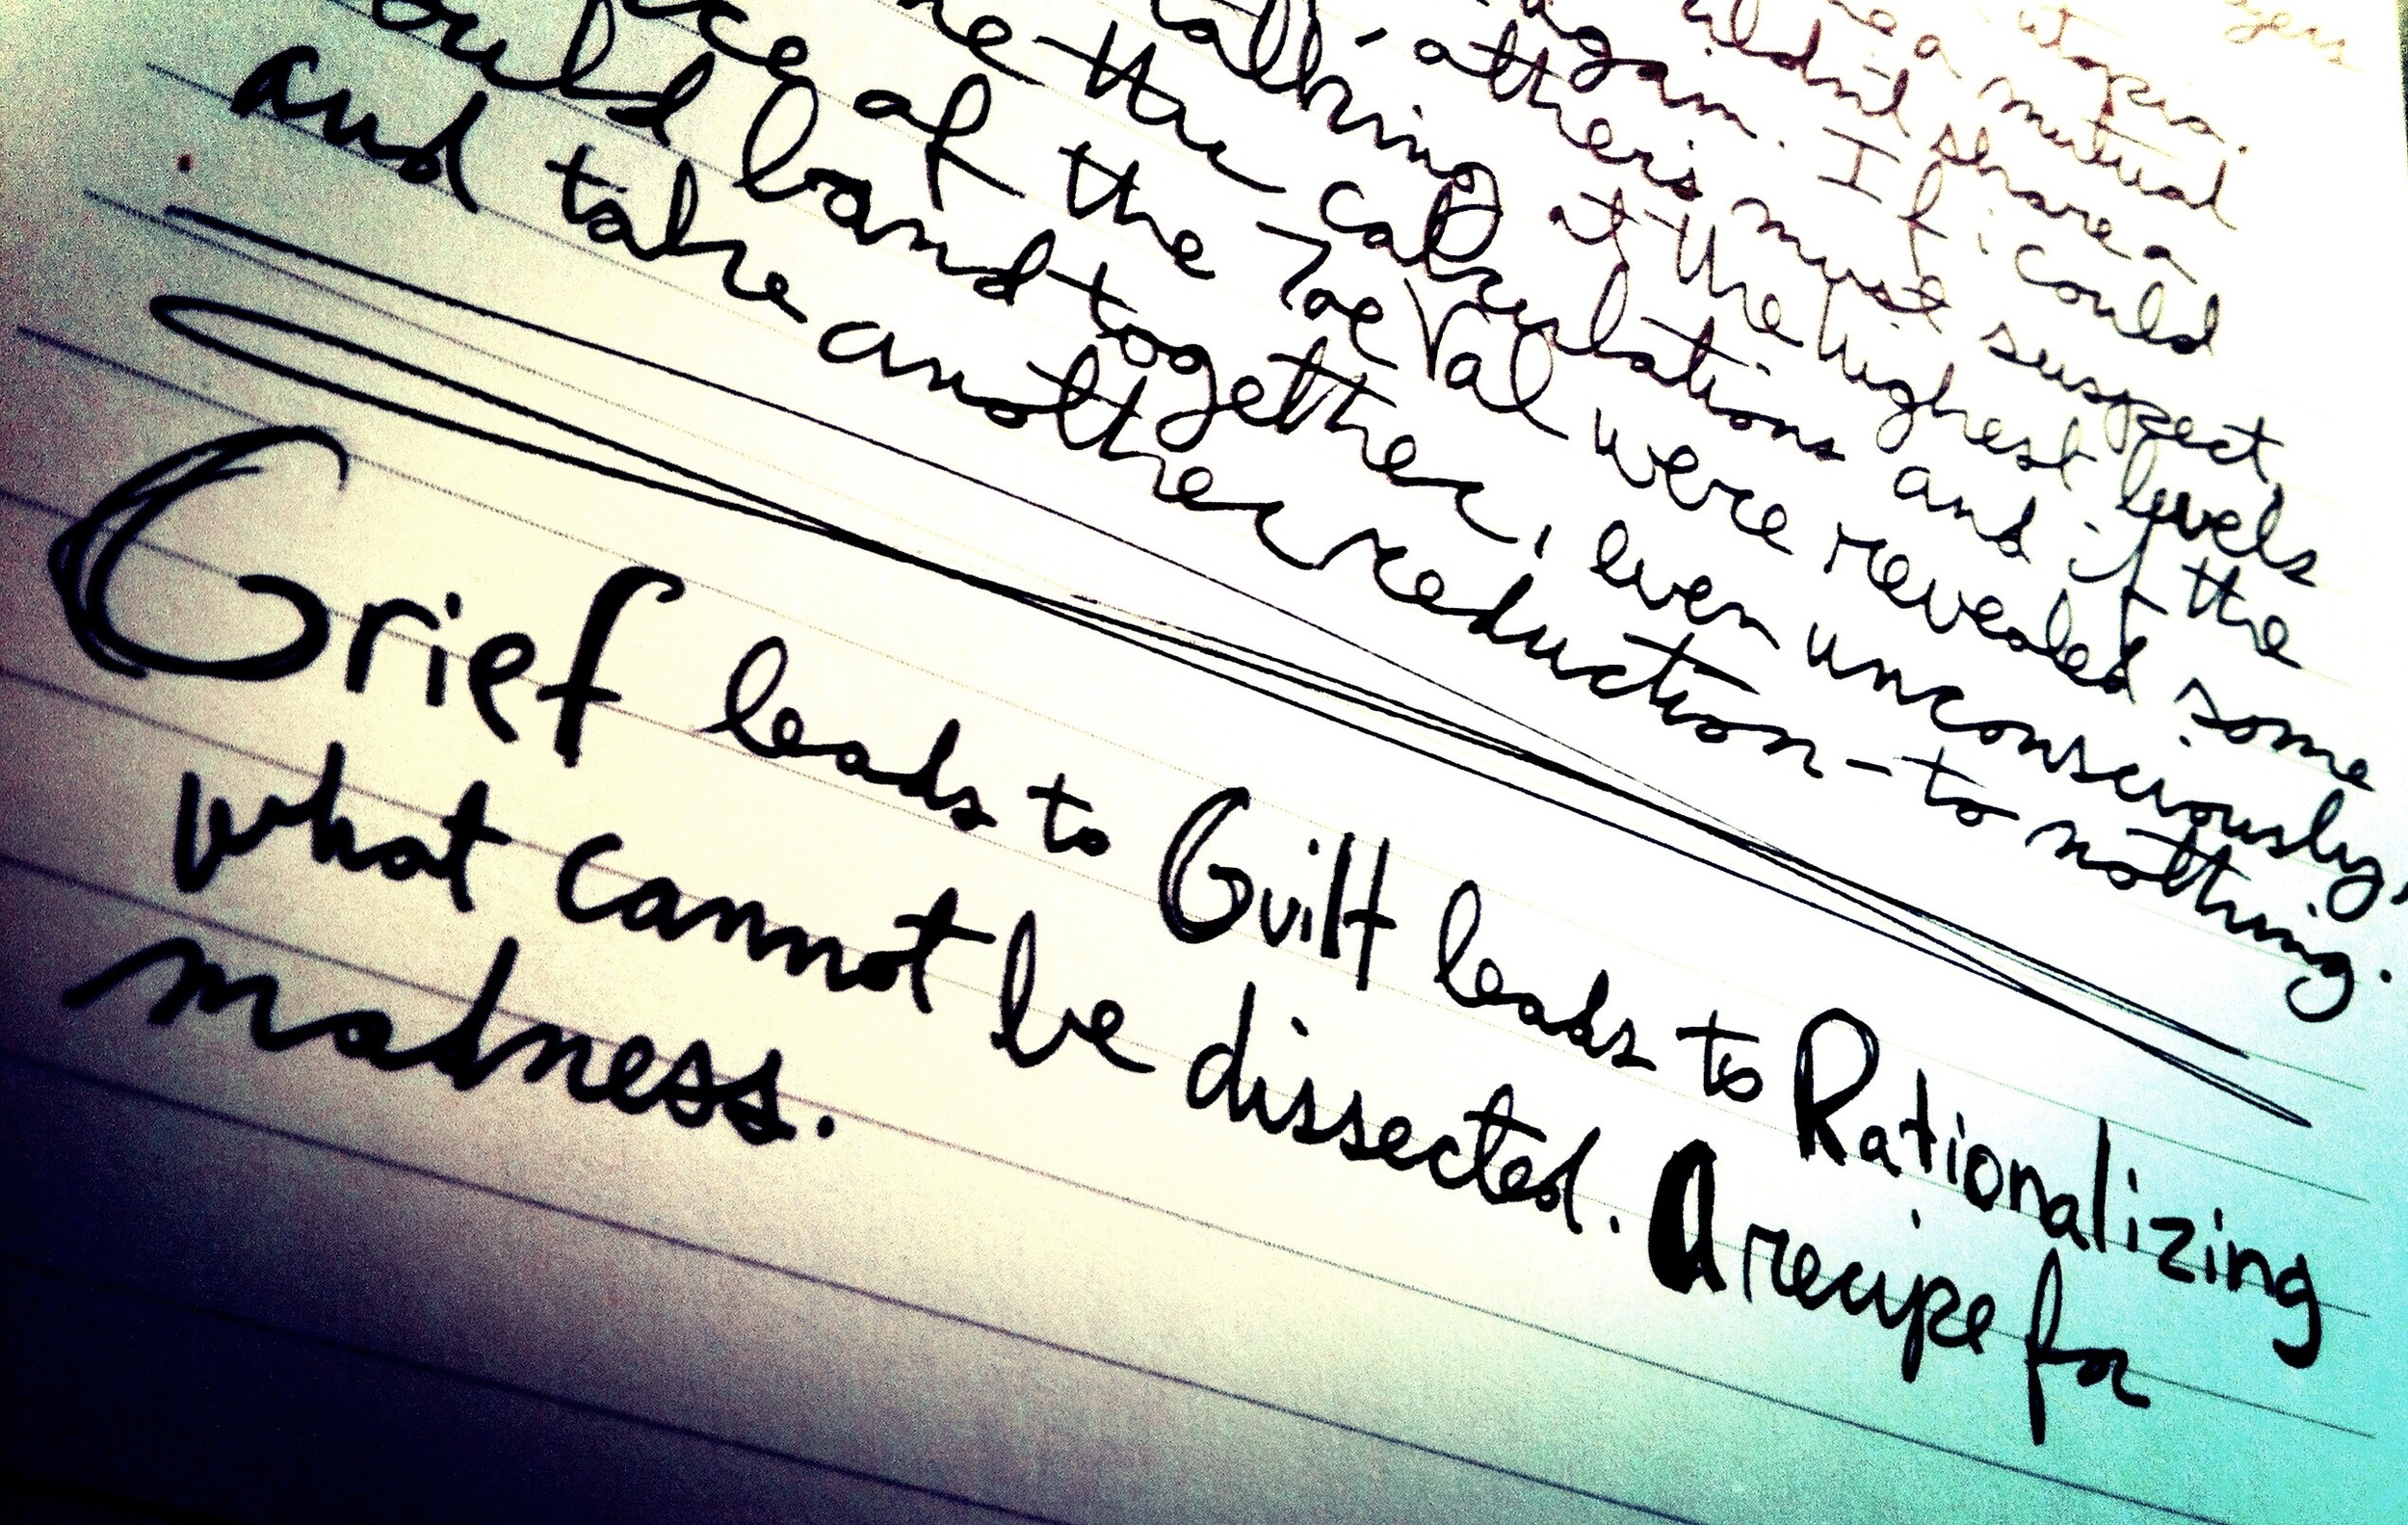 utopia.
a mutual
share a
again. If i could
other's must suspect,
talking at the highest levels
the calculations and if the
of the Zoe Val were revealed some
band together, even unconsciously,
and take another reduction - to nothing.
Grief leads to Guilt leads to Rationalizing
what cannot be dissected. A recipe for
madness.